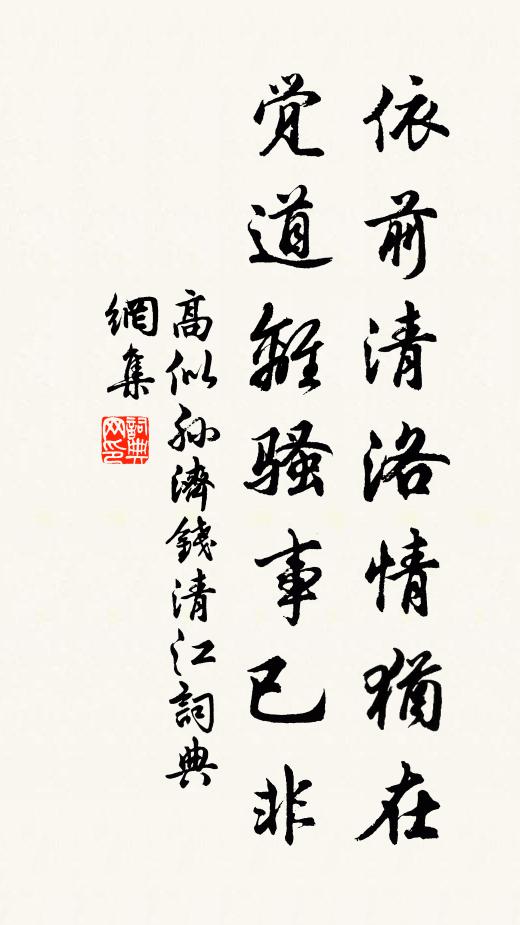 依前清洛情猶在
觉道離騷事已非
高似孙濟錢清江詞典
網集
詞典
网印